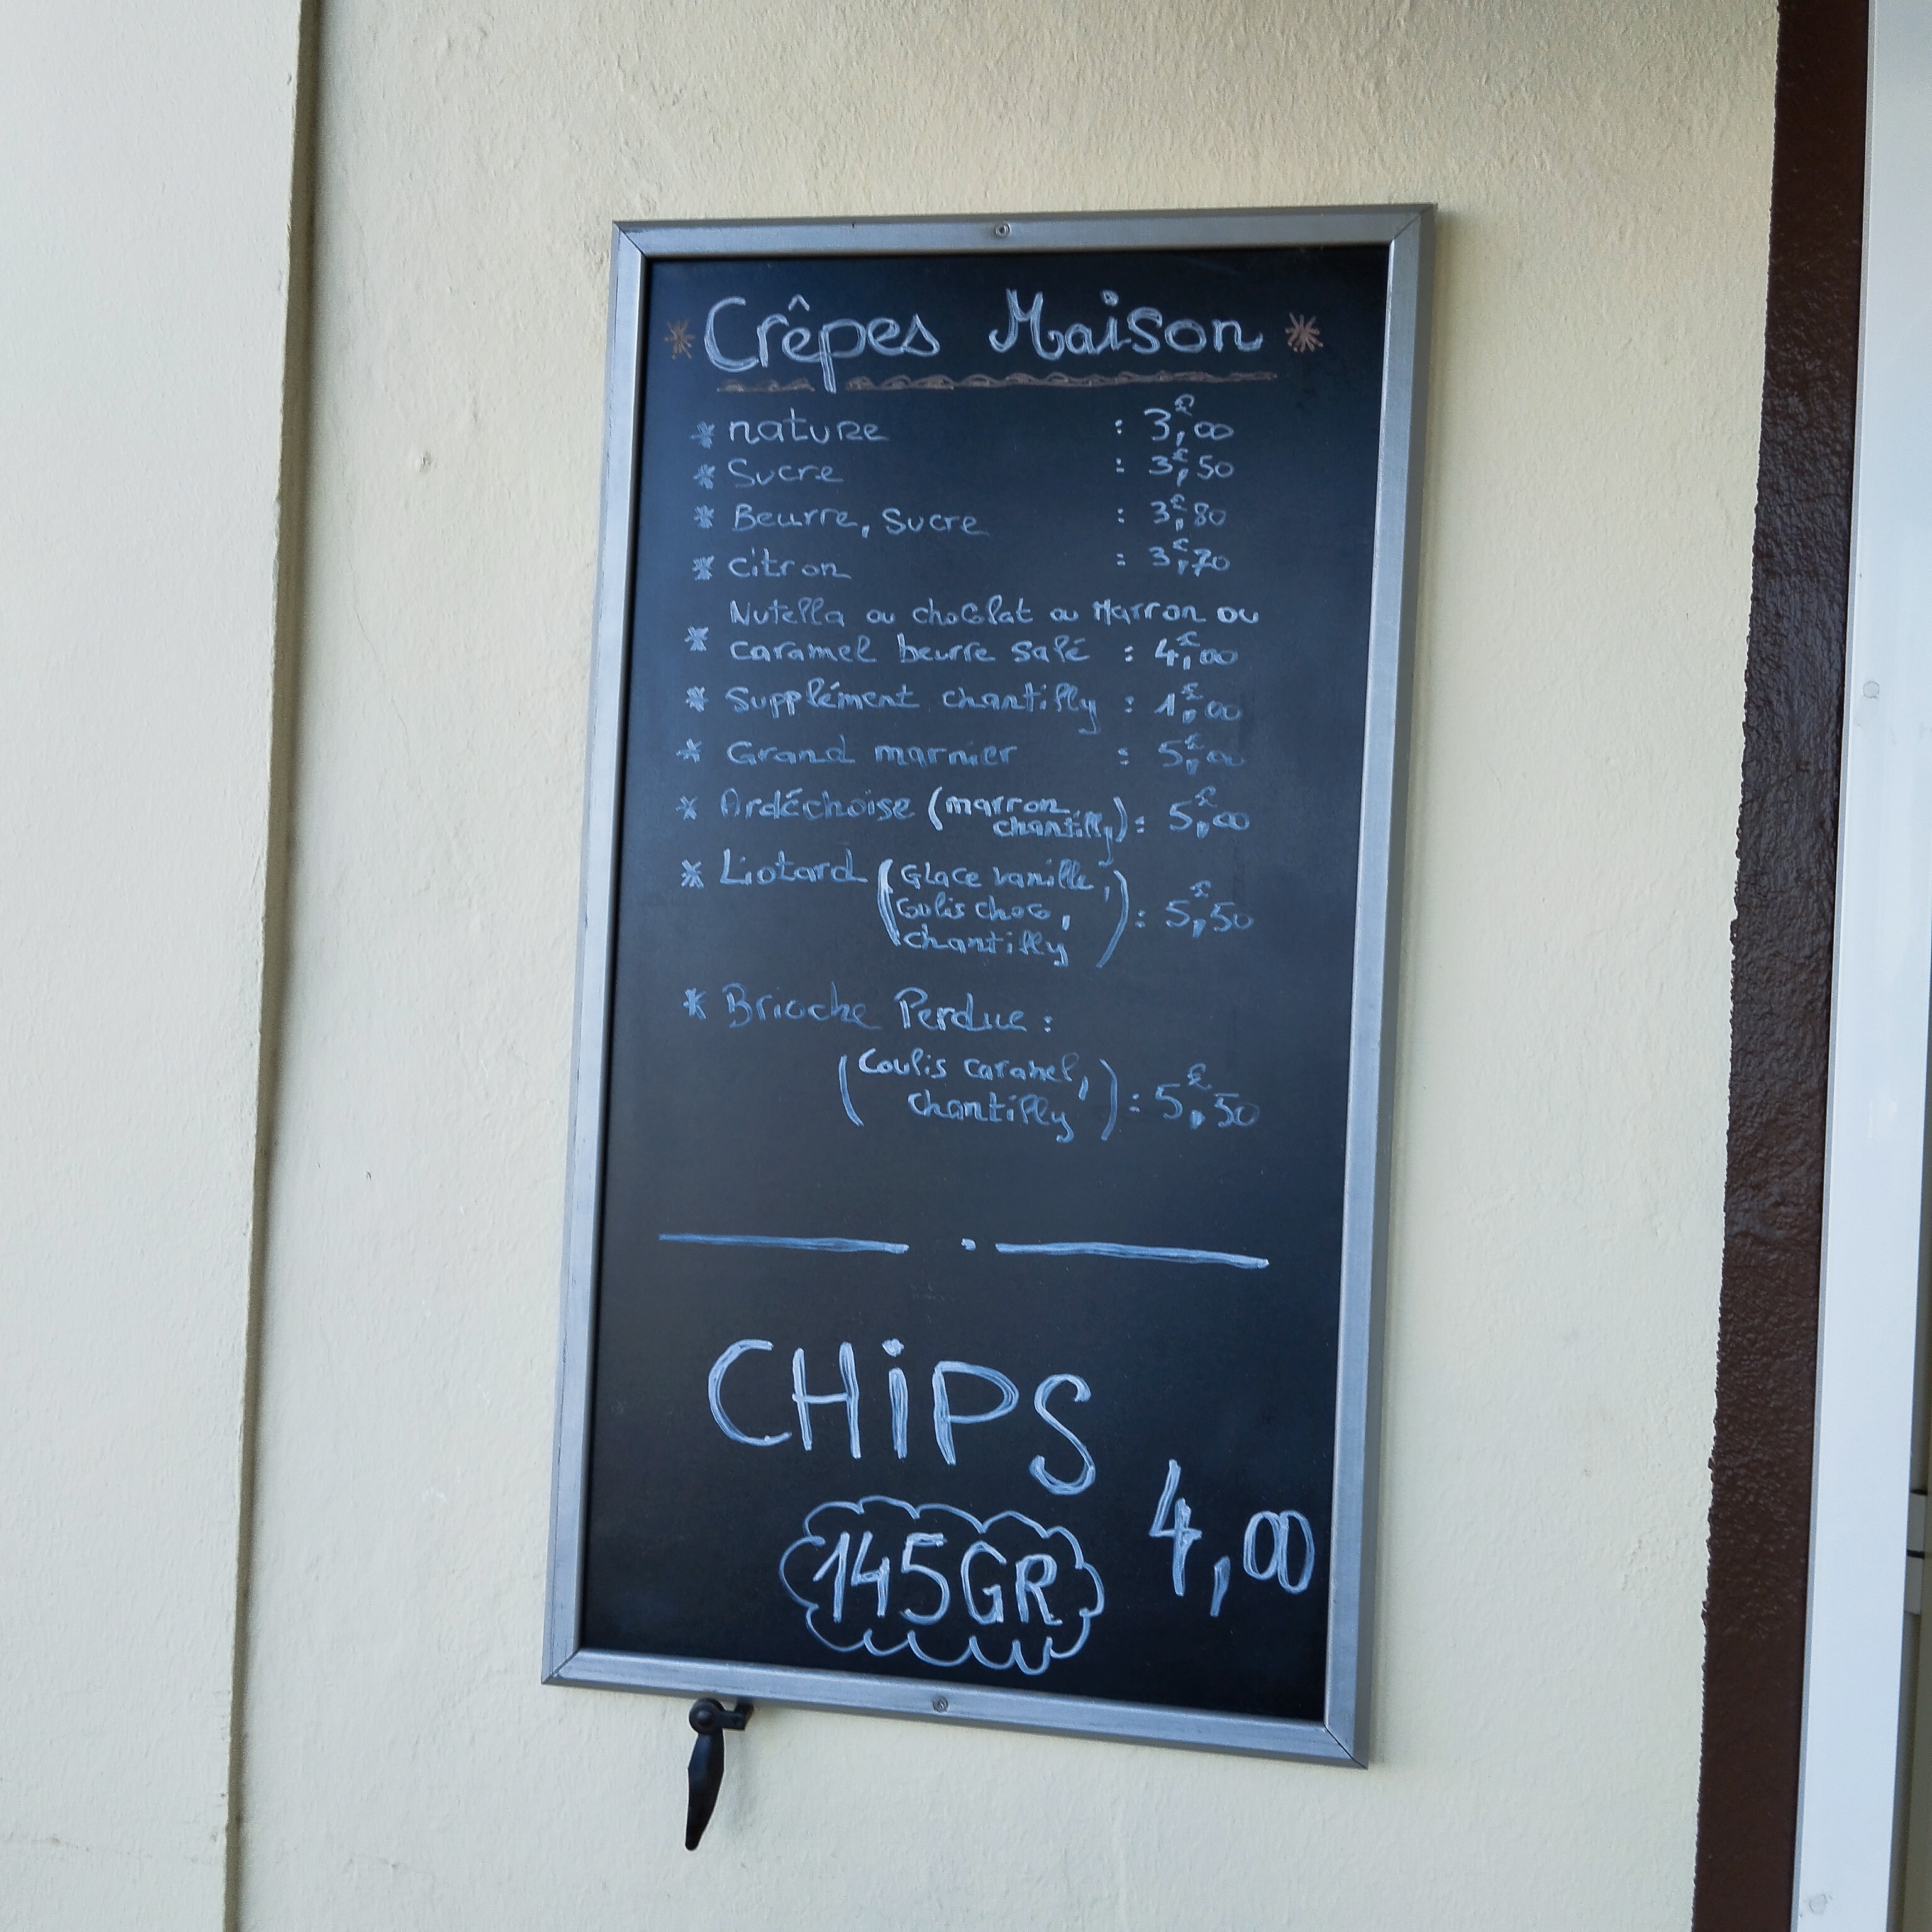 * Crêpes Maison *
* nature : 3,€00
* Sucre : 3,€50
* Beurre, Sucre : 3,€80
* citron : 3,€70
Nutella ou chocolat ou Marron ou
* caramel beurre salé : 4,€00
* Supplément chantilly : 1,€00
* Grand marnier : 5,€00
* Ardéchoise (marron
chantilly) : 5,€00
* Liotard (Glace vanille,
Coulis choco,
chantilly) : 5,€50
* Brioche Perdue :
(Coulis caramel,
chantilly) : 5,€50
CHiPS
4,00
145GR